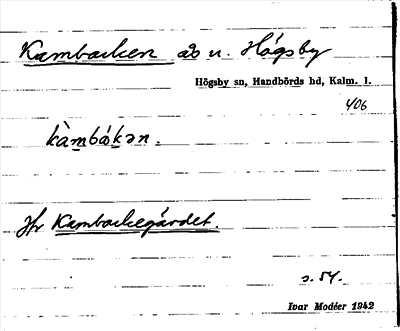 Kambacken ås u. Högsby
Högsby sn, Handbörds hd, Kalm. l.
406
kàmbákən.
Jfr Kambackegärdet.
s. 54.
Ivar Modéer 1942